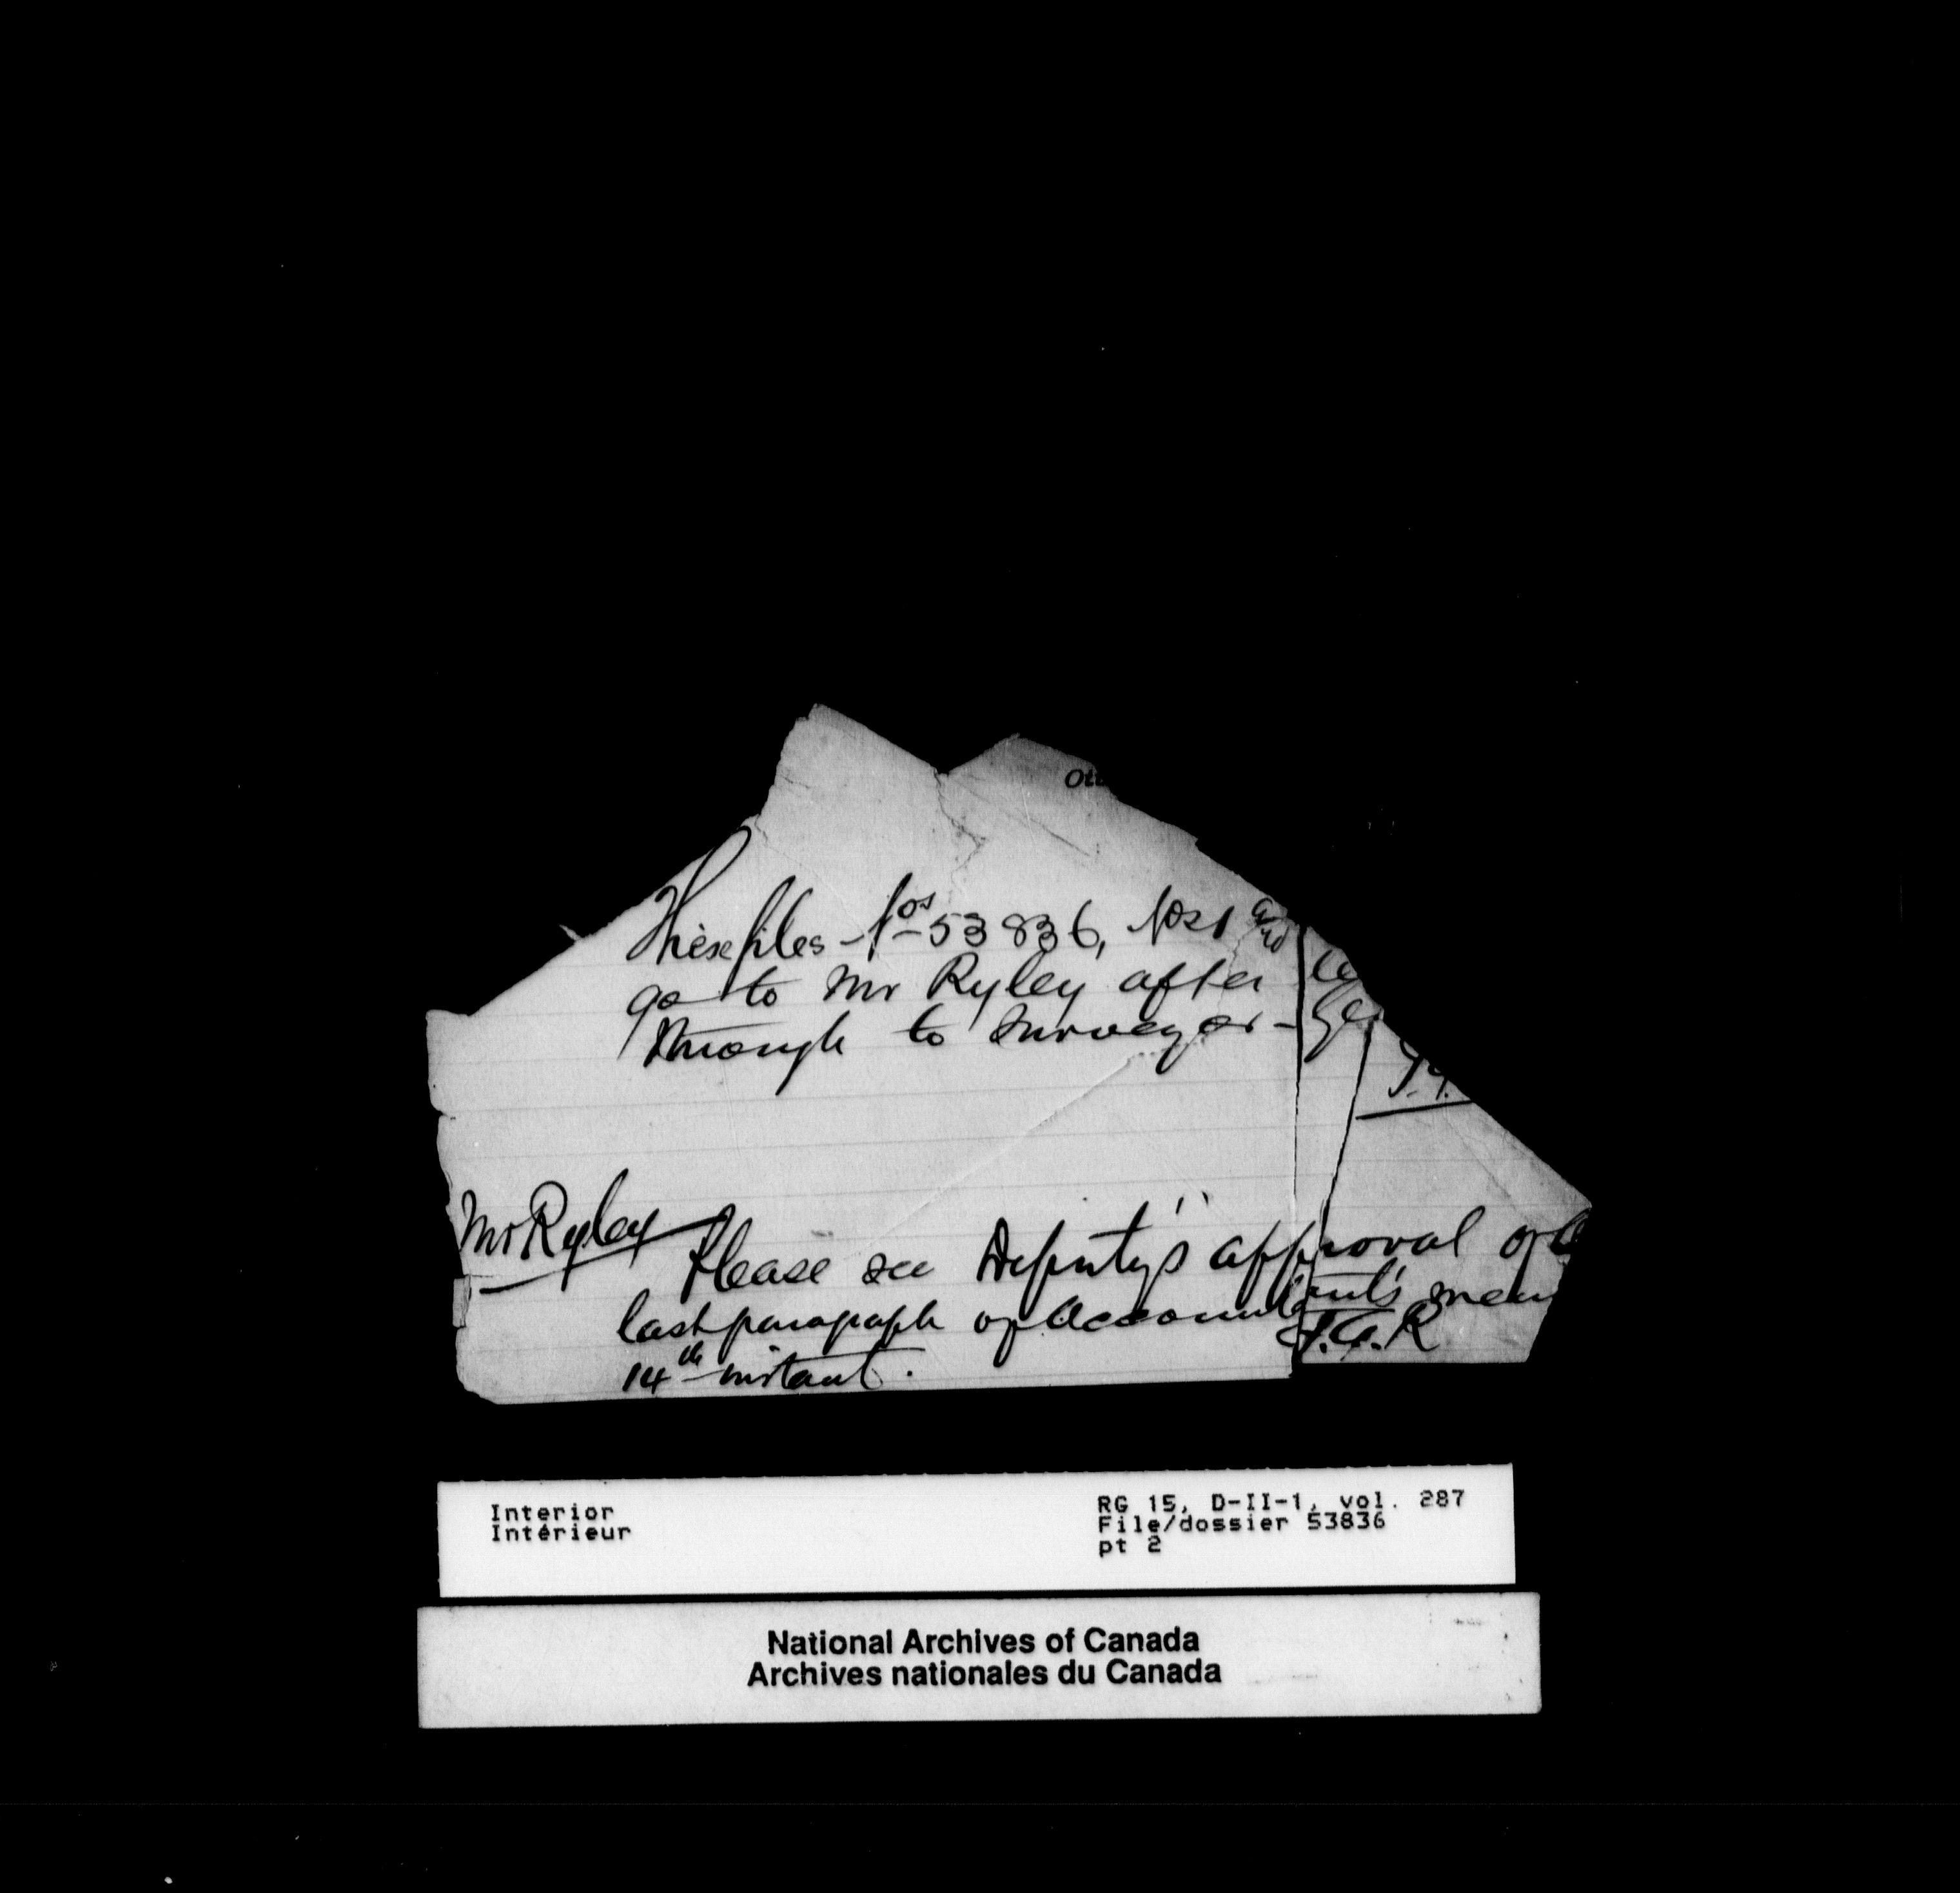 Ott
These files – Nos 53836, Nos 1 and
go to Mr Ryley after
through to Surveyor - Ge
Mr Ryley
Please see Deputy's approval of
last paragraph of Accountant's mem
14th instant. T.G.R
Interior
Intérieur
RG 15, D-II-1, vol. 287
File/dossier 53836
pt 2
National Archives of Canada
Archives nationales du Canada